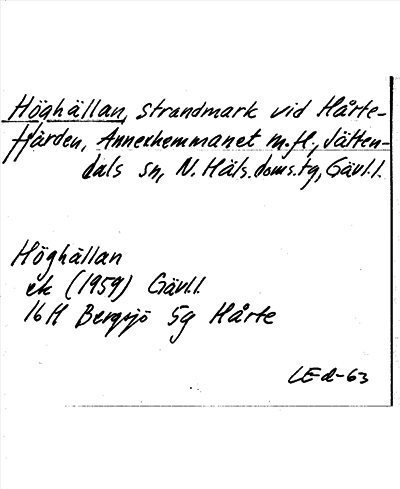 Höghällan, strandmark vid Hårte-
fjärden, Annexhemmanet m.fl., Jätten-
dals sn, N. Häls. doms.tg, Gävl.l.
Höghällan
ek (1959) Gävl.l.
16H Bergsjö 5g Hårte
LEd-63